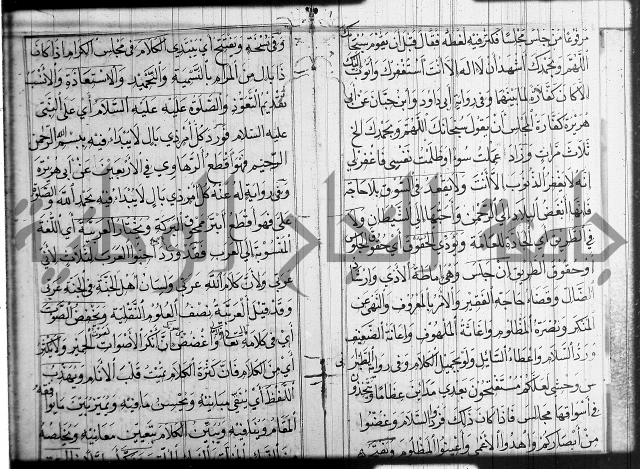 مرفوعا من جلس مجلسا فكثر فيه لغطه فقال قبل ان يقوم سبحانك
اللهم وبحمدك اشهد ان لا اله الا انت استغفرك واتوب اليك
الا كان كفارة لما بينهما وفي رواية ابي داود وابن حبان عن ابي
هريرة كفارة المجلس ان يقول سبحانك اللهم وبحمدك الخ
ثلاث مرات وزاد عملت سوءا وظلمت نفسي فاغفرلي
انه لا يغفر الذنوب الا انت ولا يقعد في السوق بلا حاجة
فانها ابغض البلاد الى الرحمن واحبها الى الشيطان ولا
في الطريق اي الجادة للعامة ويؤدي الحقوق اي حقوق المجلس
او حقوق الطريق ان جلس وهي اماطة الاذى وارشاد
الضال وقضاء حاجة الفقير والامر بالمعروف والنهي عن
المنكر ونصرة المظلوم واغاثة الملهوف واعانة الضعيف
ورد السلام واعطاء السائل ولو بجميل الكلام وفي رواية
في اسواقها مجالس فاذا كان ذلك فردوا السلام وغضوا
من ابصاركم واهدوا الاعمى واعينوا المظلوم
وفي نسخة ويفتتح اي يبتدي الكلام في مجلس الكرام اذا كان
ذا بال من المرام بالتسمية والتحميد والاستعاذة والانسب
تقديم التعوذ والصلوة عليه عليه السلام اي على النبي
عليه السلام فورد كل امر ذي بال لا يبدء فيه ببسم الله الرحمن
الرحيم فهو اقطع الرهاوي في الاربعين عن ابي هريرة
وفي رواية له عنه كل امر ذي بال لا يبدء فيه بحمد الله والصلوة
علي فهو اقطع ابتر ممحوق البركة ويختار العربية اي اللغة
المنسوبة الى العرب فقد ورد احبوا العرب لثلاث لاني
عربي ولان كلام الله عربي ولسان اهل الجنة في الجنة عربي
وقد قيل العربية نصف العلوم النقلية ويخفض الصوت
اي في كلامه لقوله تعالى واغضض من صوتك ان انكر الاصوات لصوت الحمير
اي من الكلام فان كثرة الكلام تميت قلب الانام ويهذب
اللفظ اي ينقي مبانيه ويحسن معانيه
المقام وينافيه ويبين الكلام بتعيين معانيه